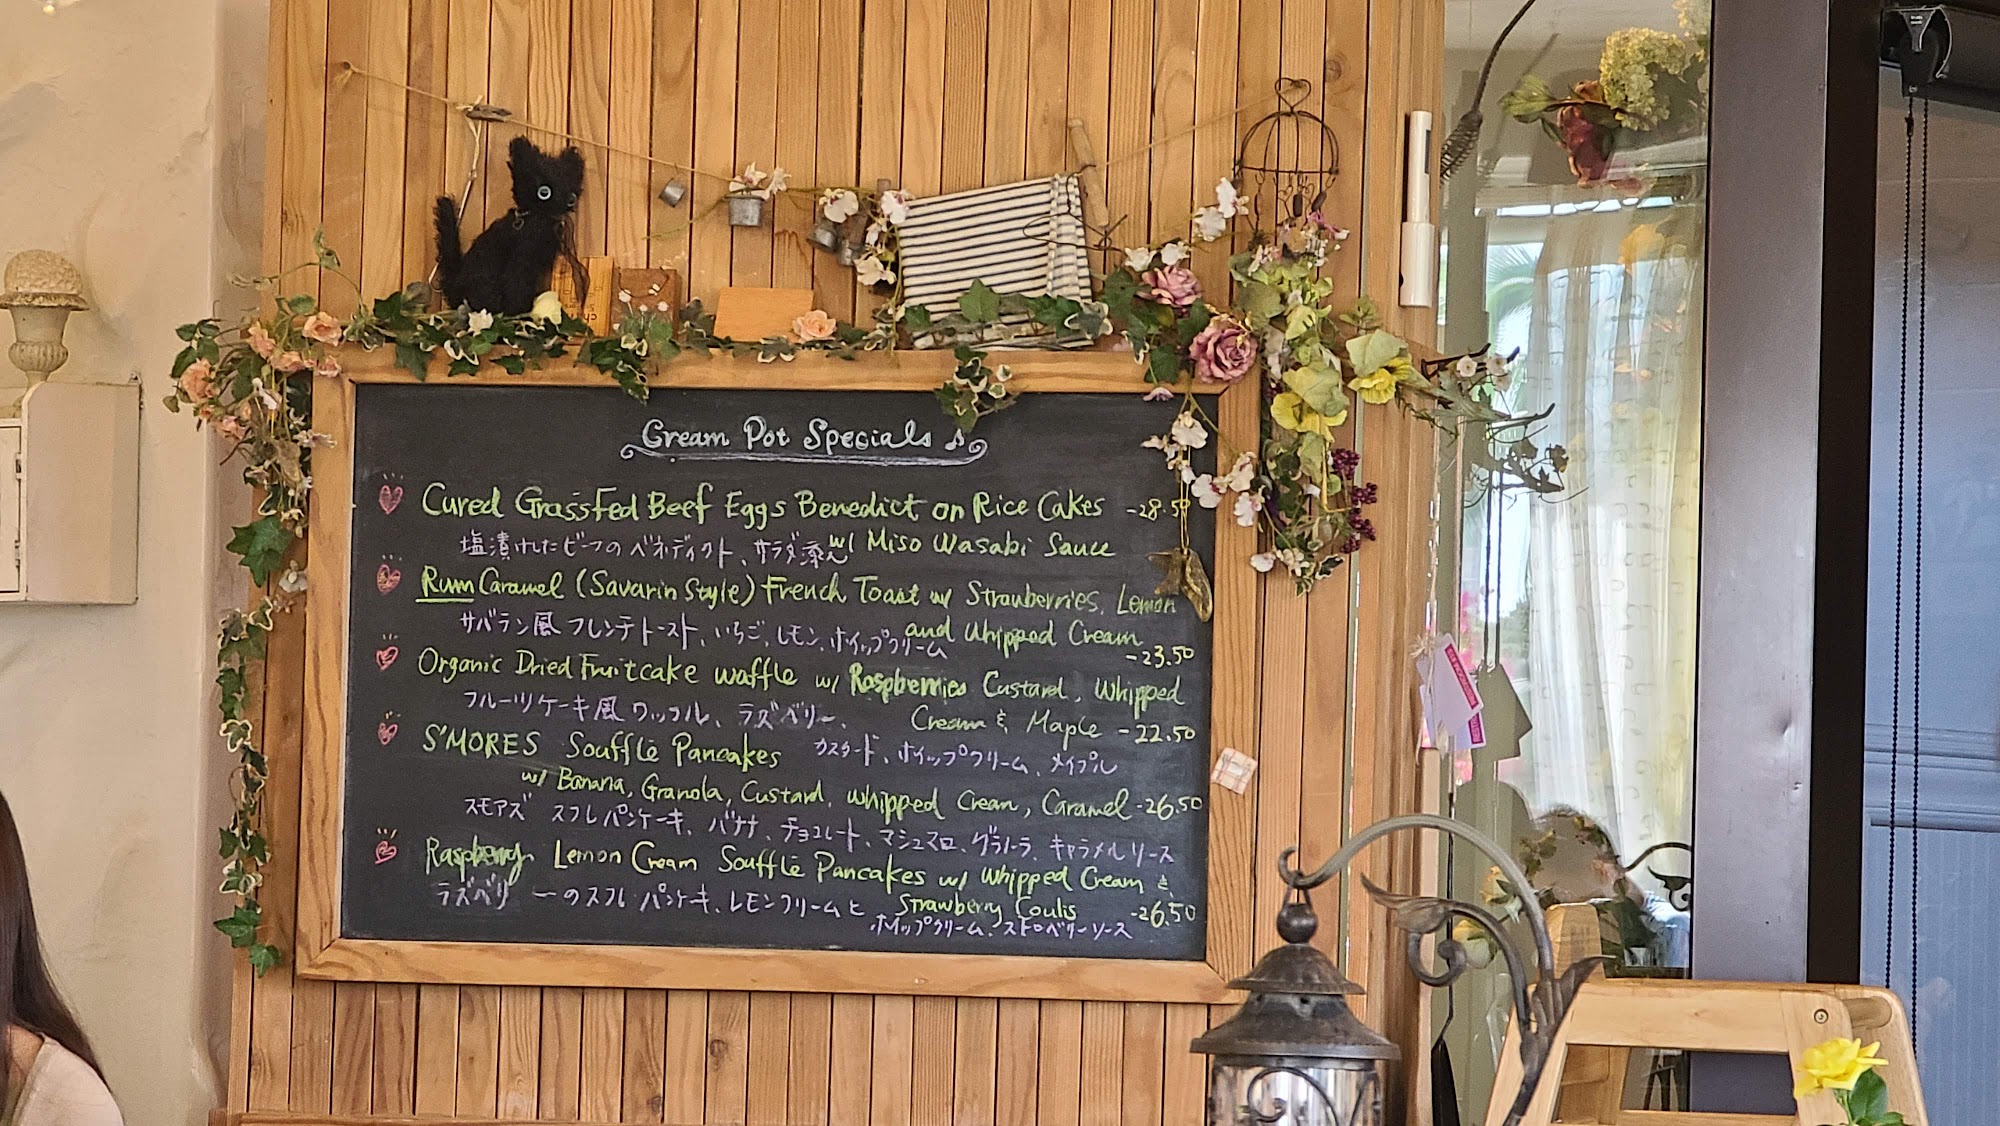 Cream Pot Specials ♪
Cured Grassfed Beef Eggs Benedict on Rice Cakes -28.50
塩漬けしたビーフのベネディクト、サラダ添え w/ Miso Wasabi Sauce
Rum Caramel (Savarin Style) French Toast w/ Strawberries, Lemon
サバラン風フレンチトースト、いちご、レモン、ホイップクリーム and Whipped Cream
-23.50
Organic Dried Fruitcake Waffle w/ Raspberries Custard, Whipped
フルーツケーキ風ワッフル、ラズベリー、 Cream & Maple -22.50
S'MORES Soufflé Pancakes カスタード、ホイップクリーム、メイプル
w/ Banana, Granola, Custard, Whipped Cream, Caramel -26.50
スモアズ スフレパンケーキ、バナナ、チョコレート、マシュマロ、グラノーラ、キャラメルソース
Raspberry Lemon Cream Soufflé Pancakes w/ Whipped Cream &
ラズベリーのスフレパンケーキ、レモンクリームと Strawberry Coulis -26.50
ホイップクリーム、ストロベリーソース